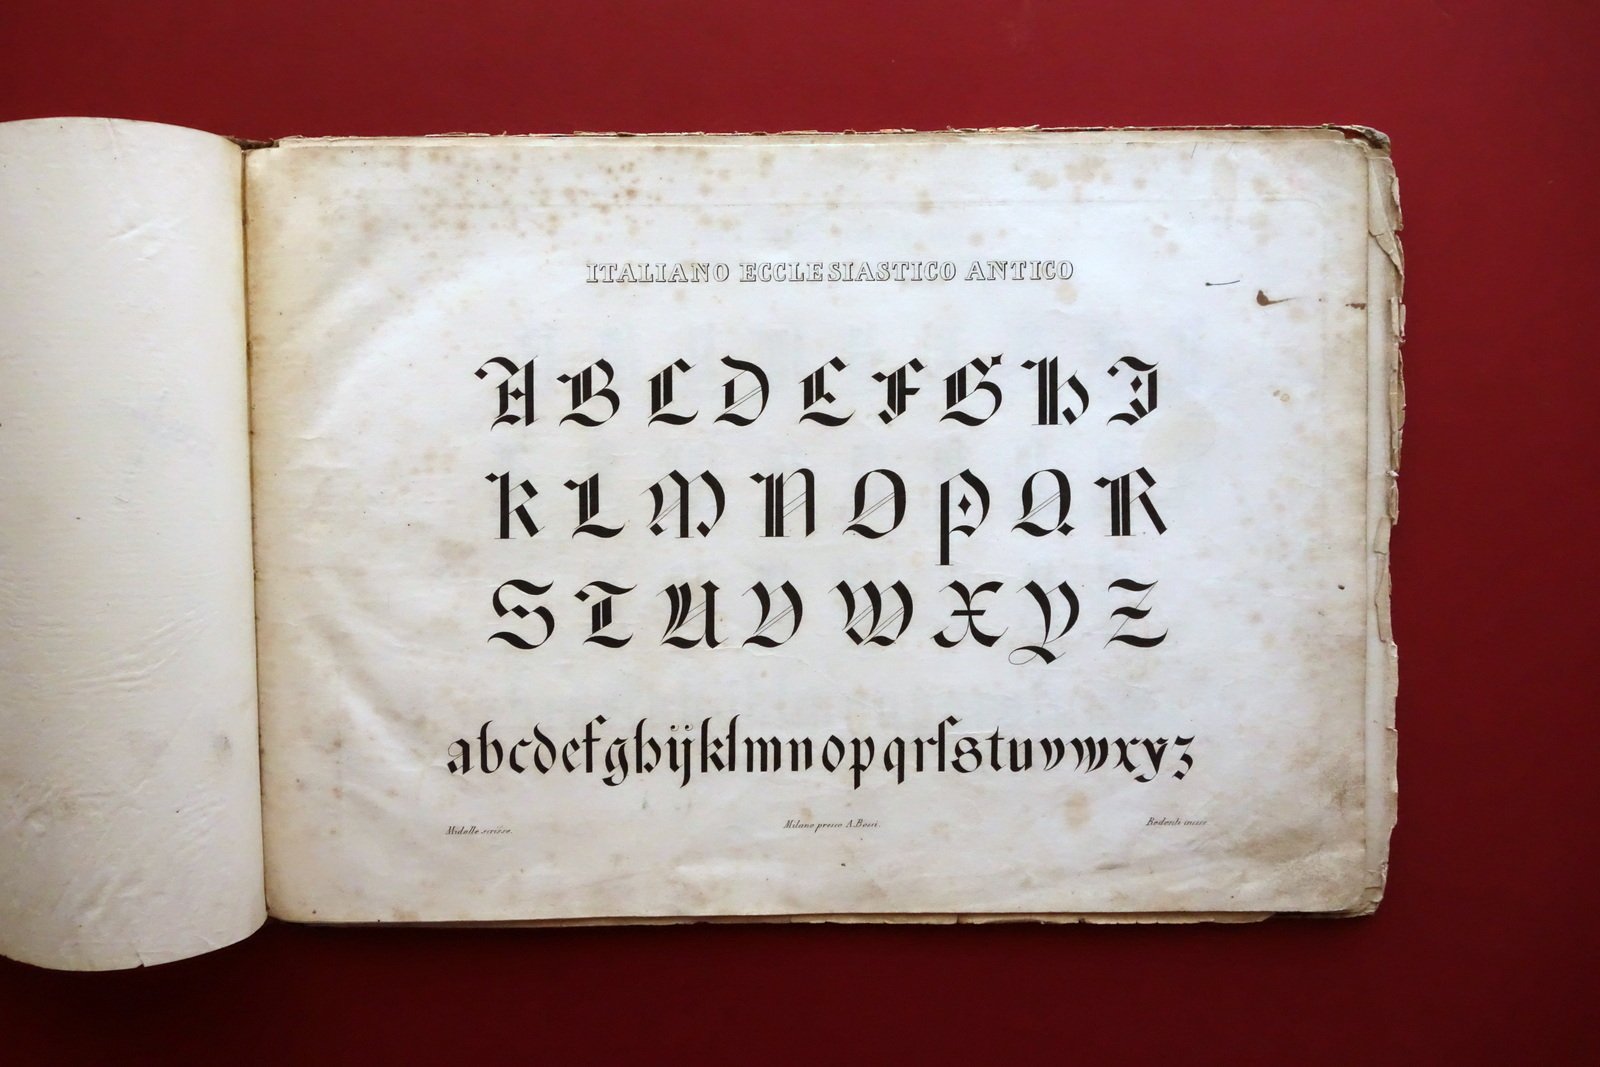 ITALIANO ECCLESIASTICO ANTICO
A B C D E F G H I
K L M N O P Q R
S T U V W X Y Z
abcdefghijklmnopqrſstuvwxyz
Midolle scrisse. Milano presso A. Bossi. Redenti incise